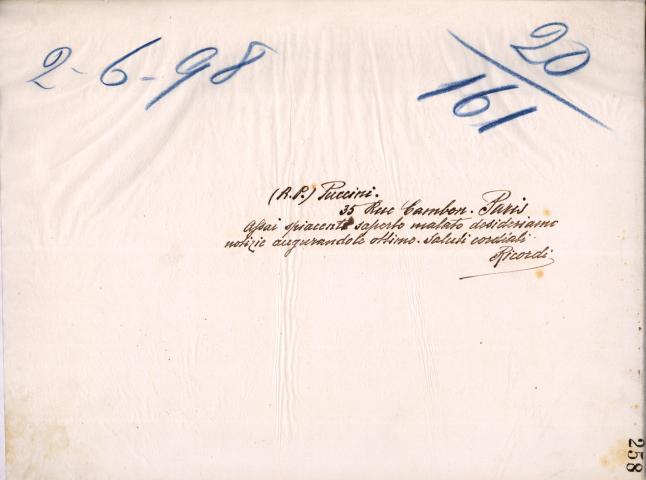 2-6-98
20
161
(R.P.) Puccini.
35 Rue Cambon. Paris
Assai spiacenti saperlo malato desideriamo
notizie augurandole ottime. Saluti cordiali
Ricordi
258